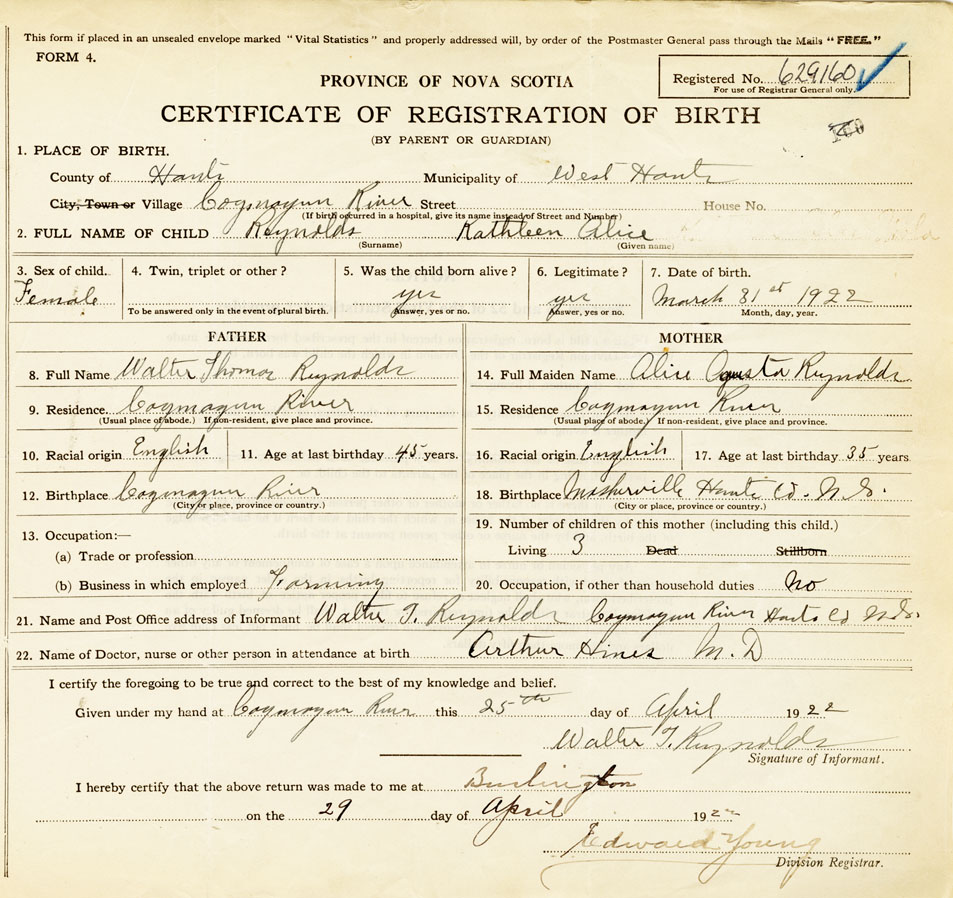 This form if placed in an unsealed envelope marked "Vital Statistics" and properly addressed will, by order of the Postmaster General pass through the Mails "FREE."
FORM 4.
PROVINCE OF NOVA SCOTIA
Registered No. 629160
For use of Registrar General only.
CERTIFICATE OF REGISTRATION OF BIRTH
(BY PARENT OR GUARDIAN)
1. PLACE OF BIRTH.
County of Hants Municipality of West Hants
City, Town or Village Cogmagun River Street House No.
(If birth occurred in a hospital, give its name instead of Street and Number)
2. FULL NAME OF CHILD Reynolds Kathleen Alice
(Surname) (Given name)
3. Sex of child. 4. Twin, triplet or other? 5. Was the child born alive? 6. Legitimate? 7. Date of birth.
Female yes yes March 31st 1922
To be answered only in the event of plural birth. Answer, yes or no. Answer, yes or no. Month, day, year.
FATHER MOTHER
8. Full Name Walter Thomas Reynolds 14. Full Maiden Name Alice Reynolds
9. Residence. Cogmagun River 15. Residence Cogmagun River
(Usual place of abode.) If non-resident, give place and province. (Usual place of abode.) If non-resident, give place and province.
10. Racial origin English 11. Age at last birthday 45 years. 16. Racial origin English 17. Age at last birthday 35 years
12. Birthplace Cogmagun River 18. Birthplace Mosherville Hants Co. N.S.
(City or place, province or country.) (City or place, province or country.)
13. Occupation:—
(a) Trade or profession
(b) Business in which employed Farming
19. Number of children of this mother (including this child.)
Living 3 Dead Stillborn
20. Occupation, if other than household duties No
21. Name and Post Office address of Informant Walter T. Reynolds Cogmagun River Hants Co N.S.
22. Name of Doctor, nurse or other person in attendance at birth Arthur Hines M.D
I certify the foregoing to be true and correct to the best of my knowledge and belief.
Given under my hand at Cogmagun River this 25th day of April 1922
Walter T. Reynolds
Signature of Informant.
I hereby certify that the above return was made to me at Burlington
on the 29 day of April 192
Edward Young
Division Registrar.